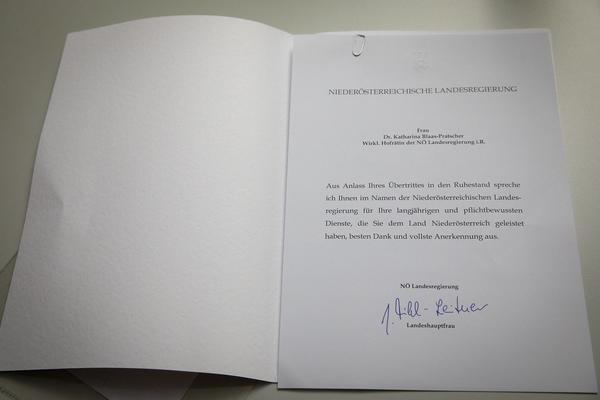 NIEDERÖSTERREICHISCHE LANDESREGIERUNG
Frau
Dr. Katharina Blaas-Pratscher
Wirkl. Hofrätin der NÖ Landesregierung i.R.
Aus Anlass Ihres Übertrittes in den Ruhestand spreche
ich Ihnen im Namen der Niederösterreichischen Landes-
regierung für Ihre langjährigen und pflichtbewussten
Dienste, die Sie dem Land Niederösterreich geleistet
haben, besten Dank und vollste Anerkennung aus.
NÖ Landesregierung
J. Mikl-Leitner
Landeshauptfrau